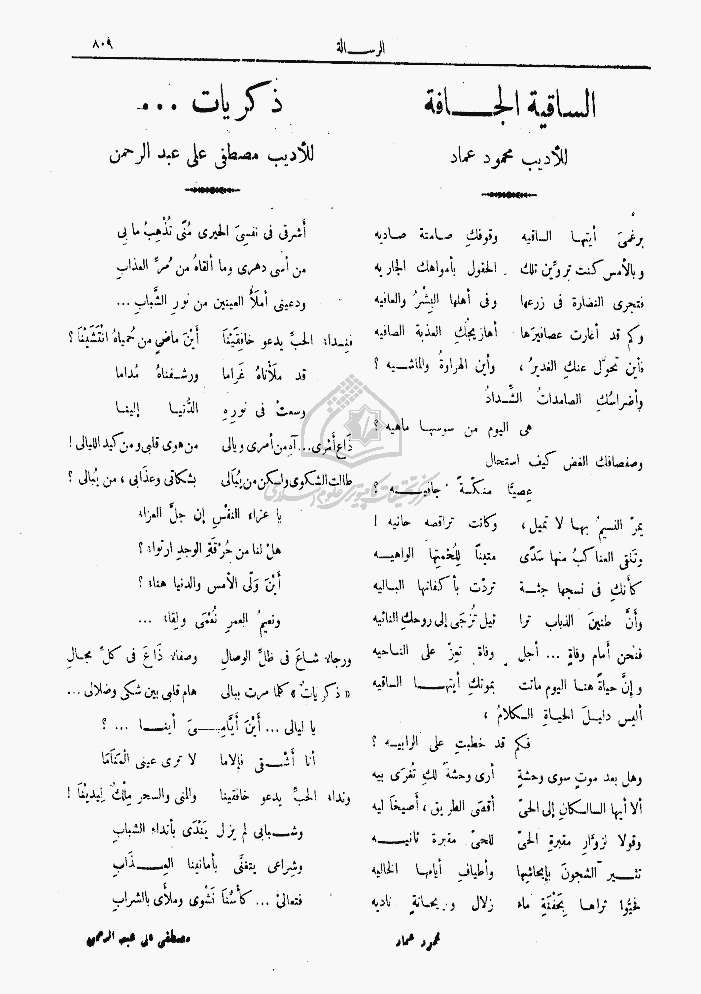 الرسالة
٨٠٩
الساقية الجافة
للأديب محمود عماد
برغمىَ أيتها الساقيه وقوفكِ صامتة صاديه
وبالأمس كنت تروّين تلك الحقول بأمواهك الجاريه
فتجرى النضارة فى زرعها وفى أهلها البِشْرُ والعافيه
وكم قد أعارت عصافيرَها أهازيجُكِ العذبة الصافيه
فأين تحوّل عنكِ الغديرُ ، وأين الهراوةُ والماشيه ؟
وأضراسُكِ الصامدات الشِّدادُ
هى اليوم من سوسها ماهيه ؟
وصفصافك الغض كيف استحال
عِصيًّا منكّسةً جافيه ؟
يمرّ النسيمُ بها لا تميل ، وكانت تراقصه حانيه !
وتَلقى العناكبُ منها سَدًى متيناً للُحمتها الواهيه
كأنكِ فى نسجها جثة تردّت بأكفانها الباليه
وأنَّ طنينَ الذباب ترا تيل تُزجَى إلى روحكِ النائيه
فنحن أمام وفاةٍ ... أجل وفاة تعِزّ على الناحيه
وإنَّ حياةً هنا اليوم ماتت بموتكِ أيتها الساقيه
أليس دليلَ الحياةِ الكلامُ ،
فكم قد خطبتِ على الرابيه ؟
وهل بعد موتٍ سوى وحشةٍ أرى وحشةً لكِ تُفرَى بيه
ألا أيها السالكان إلى الحىّ أقصَى الطريق ، أصيخا ليه
وقولا لزوّارِ مقبرةِ الحىّ للحىّ مقبرة ثانيه
تثير الشجونَ بإيحاشِها وأطيافِ أيامها الخاليه
فحيُّوا تراها بِحَفْنَةِ ماء زلال وريحانةٍ ناديه
محمود عماد
ذكريات ...
للأديب مصطفى على عبد الرحمن
أشرقى فى نفسىَ الحيرى مُنًى تُذْهِبُ ما بى
من أسى دهرى وما ألقاهُ من مُرِّ العذاب
ودعينى أملأُ العينين من نورِ الشَّباب ...
فنداء الحبِّ يدعو خافِقَيْنَا أَيْنَ ماضٍ من حُمياهُ انْتَشَيْنَا ؟
قد ملأناهُ غَراما ورشفناهُ مُداما
وسعتْ فى نورِهِ الدُّنيا إلينا
ذَاعَ أمْرى ... آهِ من أمرى وبالى من هوى قلبى ومن كيد الليالى !
طالت الشكوى ولكن من يُبَالى بشكاتى وعذابى ، من يُبالى ؟
يا عزاء النفْسِ إن جلَّ العزاء
هلْ لنا من حُرْقةِ الوجدِ ارتواء ؟
أيْنَ وَلّى الأمس والدنيا هناء ؟
ونعيمُ العمرِ نُعْمَى ولِقاء ...
ورجاء شاعَ فى ظلِّ الوصالِ وصفاء ذَاعَ فى كلِّ مجالِ
« ذكريات » كلما مرت ببالى هام قلبى بين شكى وضلالى ...
يا ليالىَّ ... أيْنَ أيَّامِىَ أينا ... ؟
أنا أَشْقَى فإلاما لا ترى عينى المَنَامَا
ونداء الحبِّ يدعو خافقينا والمنى والسحر مِلْكٌ لِيديْنَا !
وشبابى لم يزل يَنْدَى بأنداء الشباب
وشِراعى يتغنَّى بأمانينا العِذاب
فتعالىْ ... كأسُنَا نَشْوى وملأى بالشراب
مصطفى على عبد الرحمن